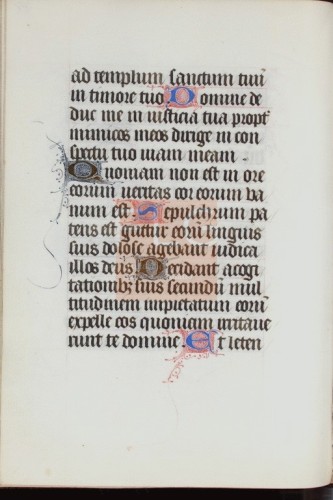 ad templum sanctum tuū
in timore tuo Domine de
duc me in iusticia tua propt
inimicos meos dirige in con
spectu tuo uiam meam
Quoniam non est in ore
eorum ueritas cor eorum ua
num est Sepulchrum pa
tens est guttur eorū linguis
suis dolose agebant iudica
illos deus Decidant a cogi
tationibꝫ suis secundū mul
titudinem impietatum eorū
expelle eos quoniam irritaue
runt te domine Et leten